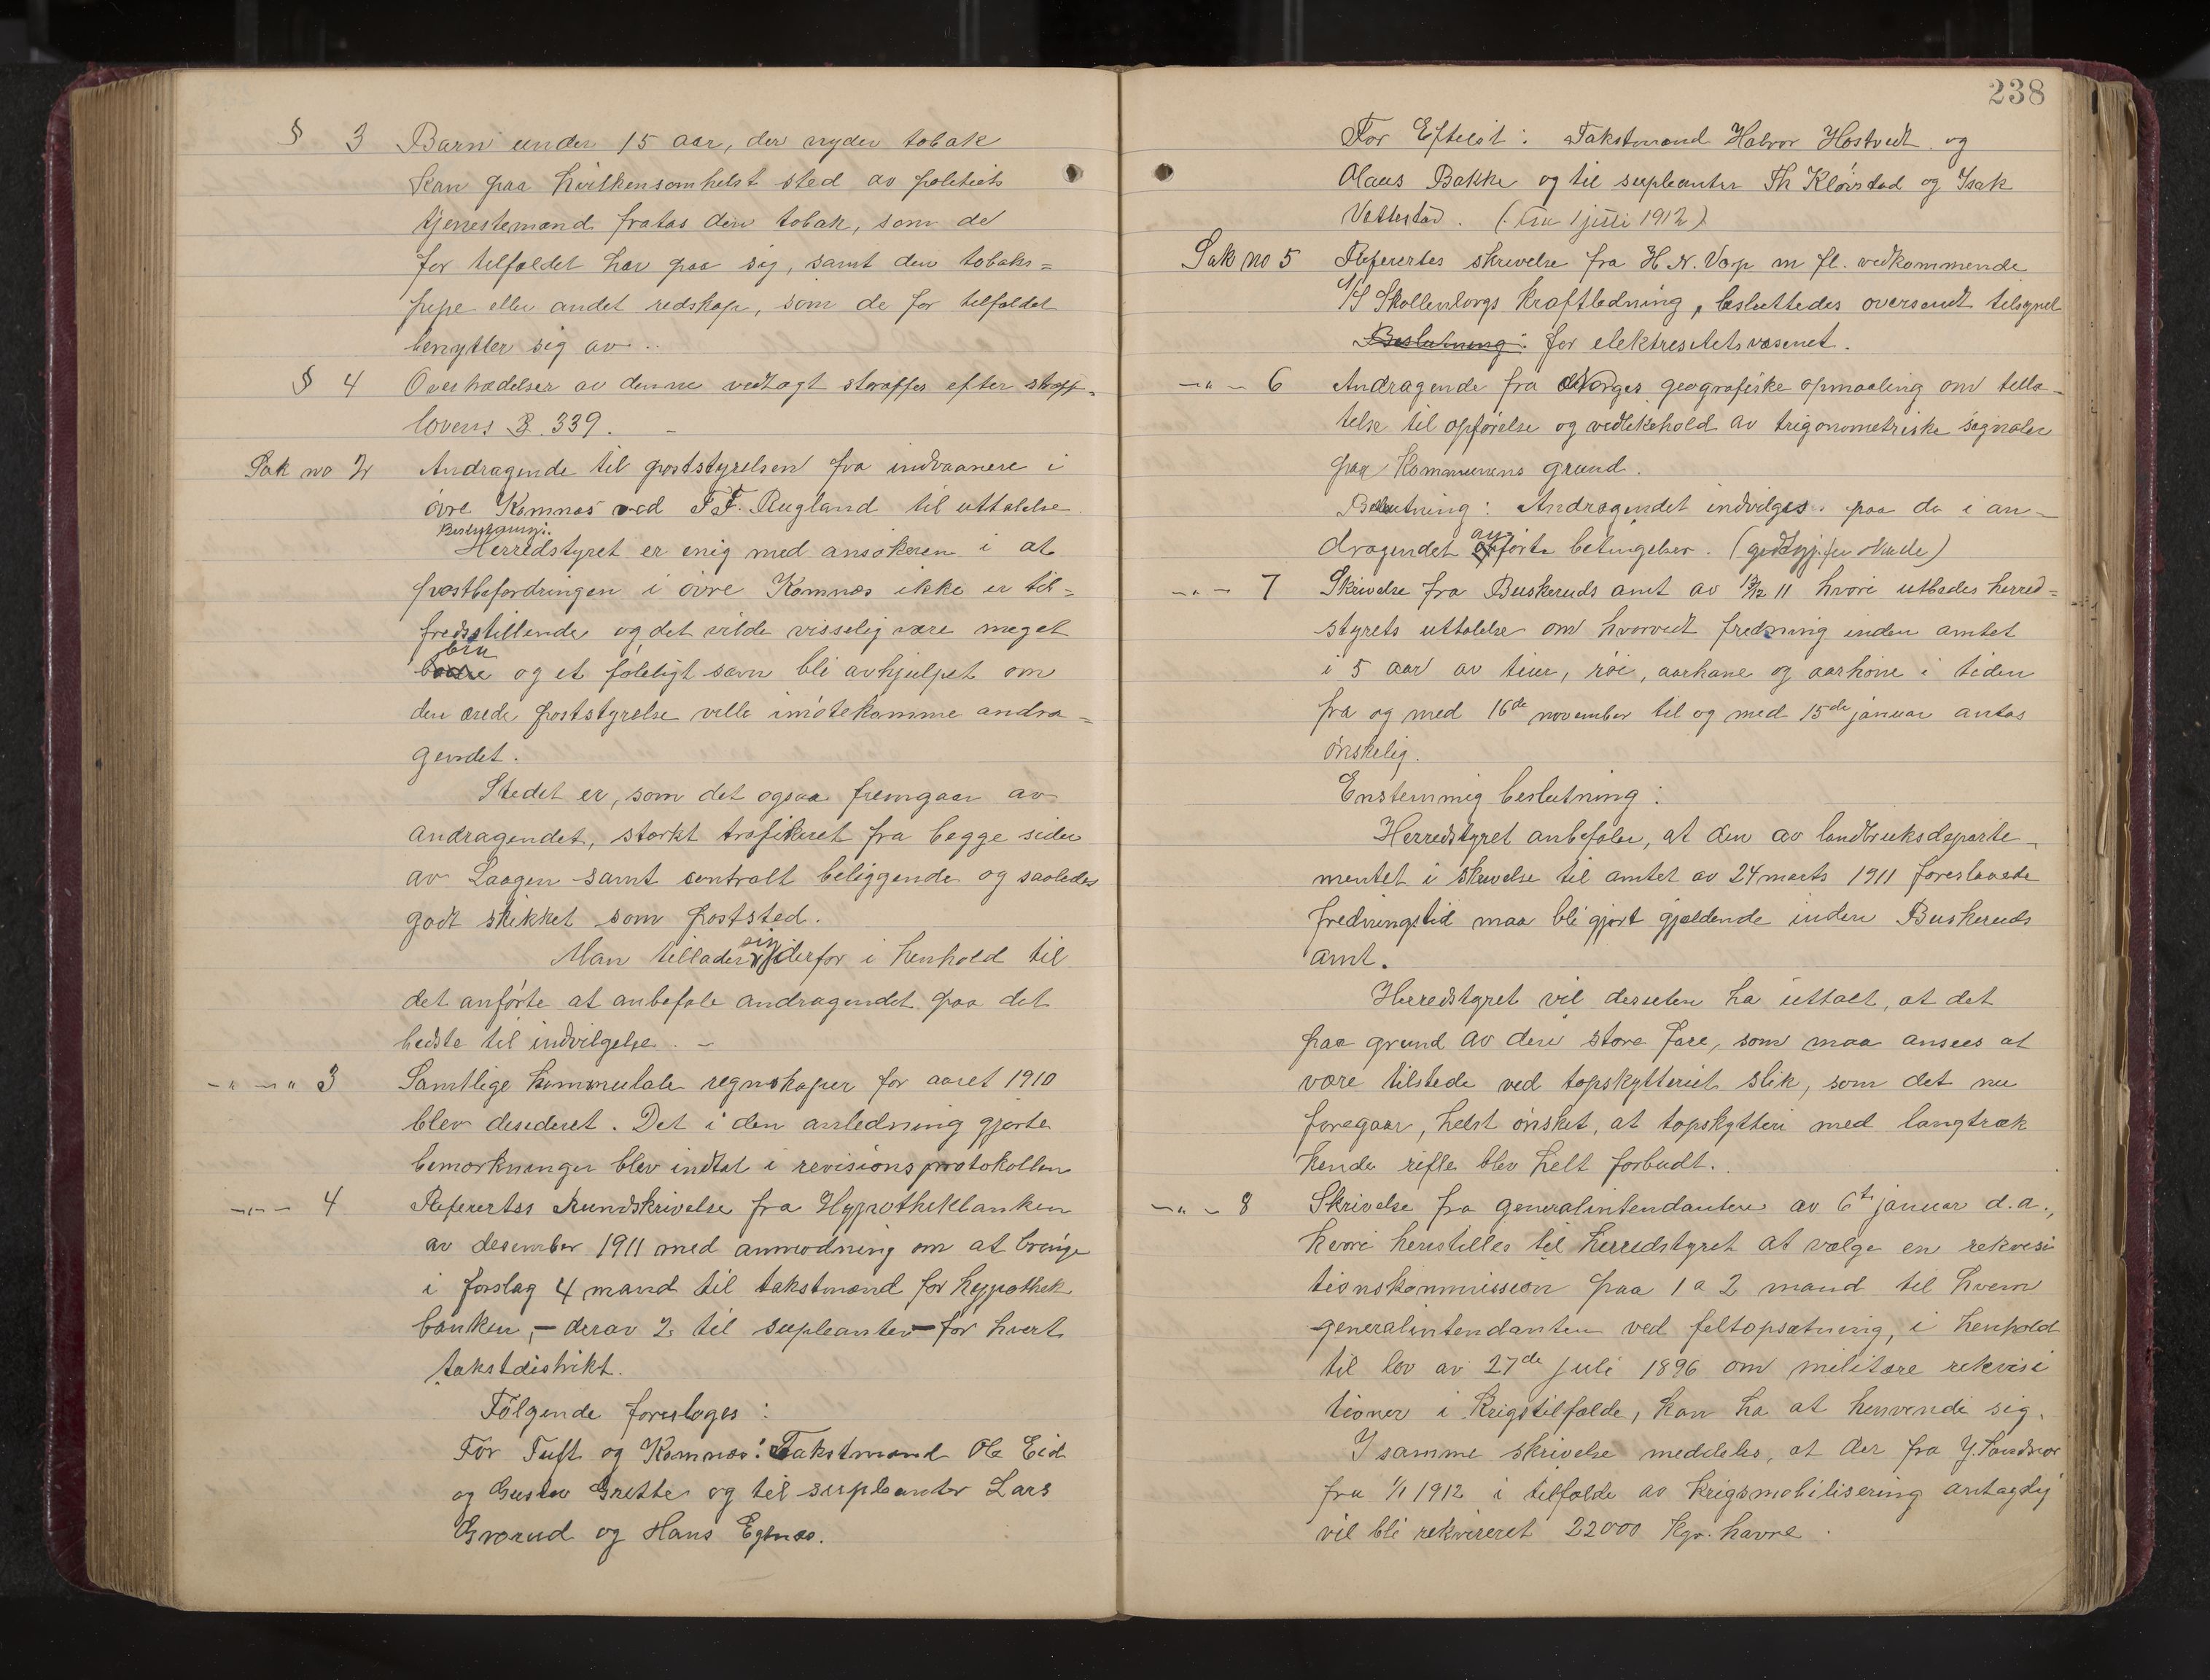 § 3 Barn under 15 aar, der nyder tobak
kan paa hvilkensomhelst sted av politiets
tjenestemænd fratas den tobak, som de
for tilfældet har paa sig, samt den tobaks=
pipe eller andet redskap, som de for tilfældet
benytter sig av..
§ 4 Overtrædelser av denne vedtægt straffes efter straff-
lovens § 339. –
Sak no 2 Andragende til poststyrelsen fra indvaanere i
övre Komnæs ved F. F. Rugland til uttalelse.
Beslutning:
Herredstyret er enig med ansökeren i at
postbefordringen i övre Komnæs ikke er til=
fredsstillende og det vilde visselig være meget
bra
og et föleligt savn bli avhjulpet om
den ærede poststyrelse ville imötekomme andra=
gendet.
Stedet er, som det ogsaa fremgaar av
andragendet, sterkt trafikeret fra begge sider
av Laagen samt centralt beliggende og saaledes
godt skikket som poststed.
sig
Man tillader derfor i henhold til
det anförte at anbefale andragendet paa det
bedste til indvilgelse. –
–"–"– 3 Samtlige kommunale regnskaper for aaret 1910
blev desideret. Det i den anledning gjorte
bemerkninger blev indtat i revisionsprotokollen
–"– 4 Refereres Rundskrivelse fra Hypothekbanken
av desember 1911 med anmodning om at bringe
i forslag 4 mand til takstmænd for hypothek
banken, – derav 2 til supleanter – for hvert
takstdistrikt.
Fölgende foresloges:
For Tuft og Komnæs: Takstmænd Ole Eid
og Gustav Grette og til supleanter Lars
Gvorud og Hans Egenæs.
238
For Efteløt: Takstmænd Halvor Hostvedt og
Olaus Bakke og til supleanter Th Klövstad og Isak
Vettestad. (: fra 1 juli 1912)
Sak no 5 Refereres skrivelse fra H. N. Varp m fl. vedkommende
A/S Skollenborgs kraftledning, besluttedes oversendt tilsynet
Beslutning: for elektresitetsvæsenet.
–"– 6 Andragende fra Norges geografiske opmaaling om tilla-
telse til opförelse og vedlikehold av trigonometriske signaler
paa Kommunens grund.
Beslutning: Andragendet indvilges paa de i an-
an
dragendet förte betingelser.
–"– 7 Skrivelse fra Buskeruds amt av 13/12 11 hvori utbedes herred=
styrets uttalelse om hvorvidt fredning inden amtet
i 5 aar av tiur, röi, aarhane og aarhöne i tiden
fra og med 16de november til og med 15de januar antas
önskelig.
Enstemmig beslutning:
Herredstyret anbefaler, at den av landbruksdeparte-
mentet i skrivelse til amtet av 24 marts 1911 foreslaaede
fredningstid maa bli gjort gjældende inden Buskeruds
amt.
Herredstyret vil desuten ha uttalt, at det
paa grund av den store fare, som maa ansees at
være tilstede ved topskytteriet slik, som det nu
foregaar, helst önsket, at topskytteri med langtræk
kende rifle blev helt forbudt.
–"– 8 Skrivelse fra generalintendanten av 6te januar d.a.,
hvori henstilles til herredstyret at vælge en rekvisi
tionskommission paa 1 a 2 mand til hvem
generalintendanten ved feltopsætning, i henhold
til lov av 27de juli 1896 om militære rekvisi
tioner i krigstilfælde, kan ha at henvende sig.
I samme skrivelse meddeles, at der fra Y. Sandsvær
fra 1/1 1912 i tilfælde av krigsmobilisering antagelig
vil bli rekvireret 22000 kgr. havre.